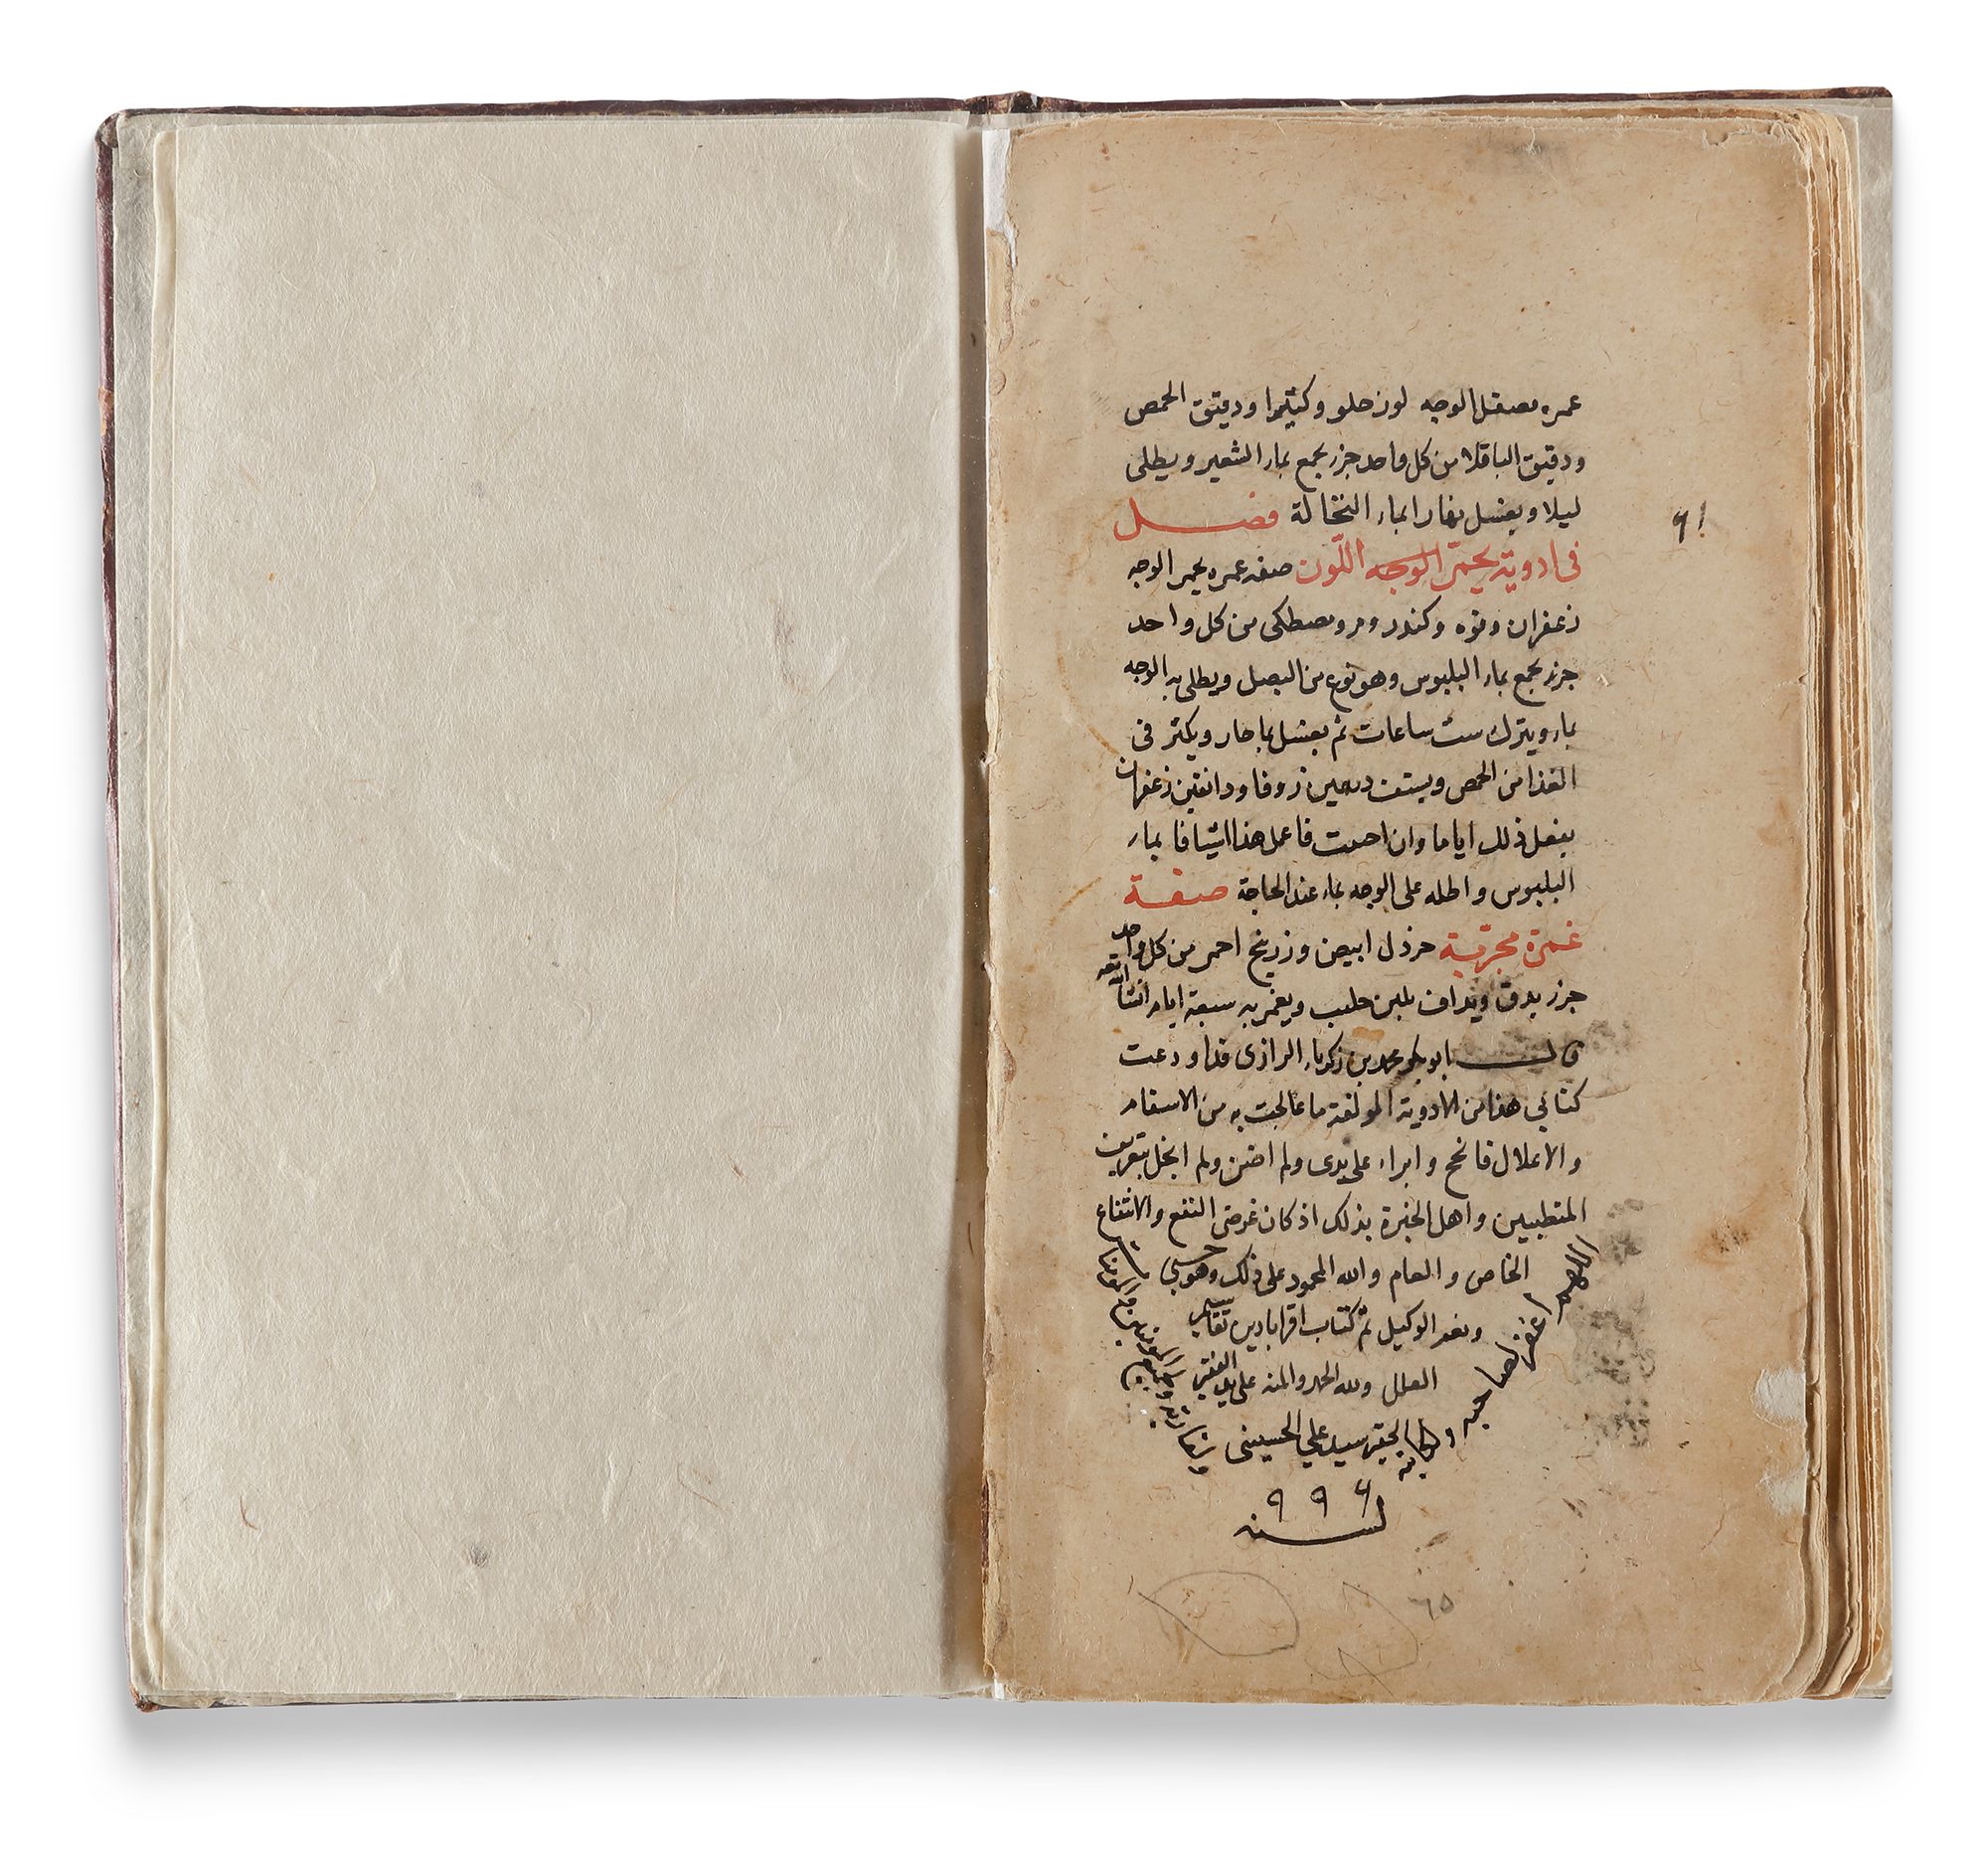 عمره يصقل الوجه لوز حلو وكثيرا ودقيق الحمص
ودقيق الباقلا من كل واحد جزء يجمع بماء الشعير ويطلى
ليلا ويغسل نهارا بماء النخالة فصل
فى ادوية يحمّر الوجه اللّون صفة عمره يحمر الوجه
زعفران وفوه وكندر ومر ومصطكى من كل واحد
جزء يجمع بماء البلبوس وهو نوع من البصل ويطلى به الوجه
بماء ويترك ست ساعات ثم يغسل بماء حار ويكثر فى
الغذا من الحمص ويستف درهمين زوفا ودانقين زعفران
يفعل ذلك اياما وان احببت فاعمل هذا اشيافا بماء
البلبوس واطله على الوجه بماء عند الحاجة صفة
غمرة مجرّبة خردل ابيض وزرنيخ احمر من كل واحد
جزء يدق ويداف بلبن حليب ويغمر به سبعة ايام انشا الله تعه
قال ابو بكر محمد بن زكرياء الرازى قد اودعت
كتابي هذا من الادوية المولفة ما عالجت به من الاسقام
والاعلال فانجح وابراء على يدى ولم اضن ولم ابخل بتعريف
المتطببين واهل الخبرة بذلك اذ كان غرضى النفع والانتفاع
الخاص والعام والله المحمود على ذلك وهو حسبي
ونعم الوكيل تم كتاب اقرابادين تقاسيم
العلل ولله الحمد والمنه على يد الفقير
الحقير سيد علي الحسينى
اللهم اغفر لصاحبه ولكاتبه
لسنه ٩٩٤
٦٥